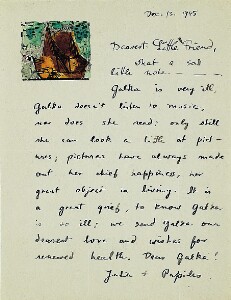 Dec. 12. 1945
Dearest Little Friend,
what a sad
little note
Galka is very ill,
Galka doesn't listen to music,
nor does she read: only still
she can look a little at pict-
ures; pictures have always made
out her chief happiness, her
great object in living. It is
a great grief, to know Galka
is so ill; we send Galka our
dearest love and wishes for
renewed health. Dear Galka!
Julia + Papileo.